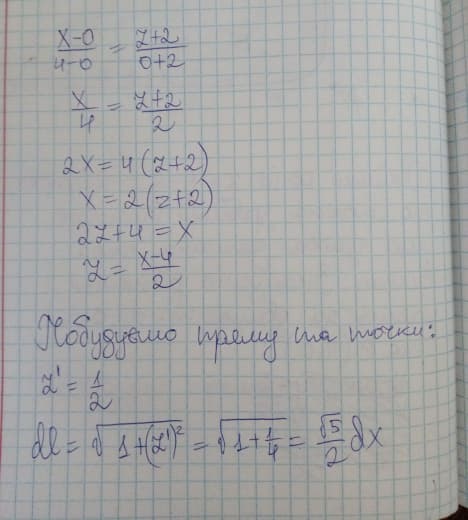 x-0/4-0 = z+2/0+2
x/4 = z+2/2
2x = 4(z+2)
x = 2(z+2)
2z+4 = x
z = x-4/2
Побудуємо пряму та точки:
z' = 1/2
dl = √1+(z')² = √1+1/4 = √5/2 dx